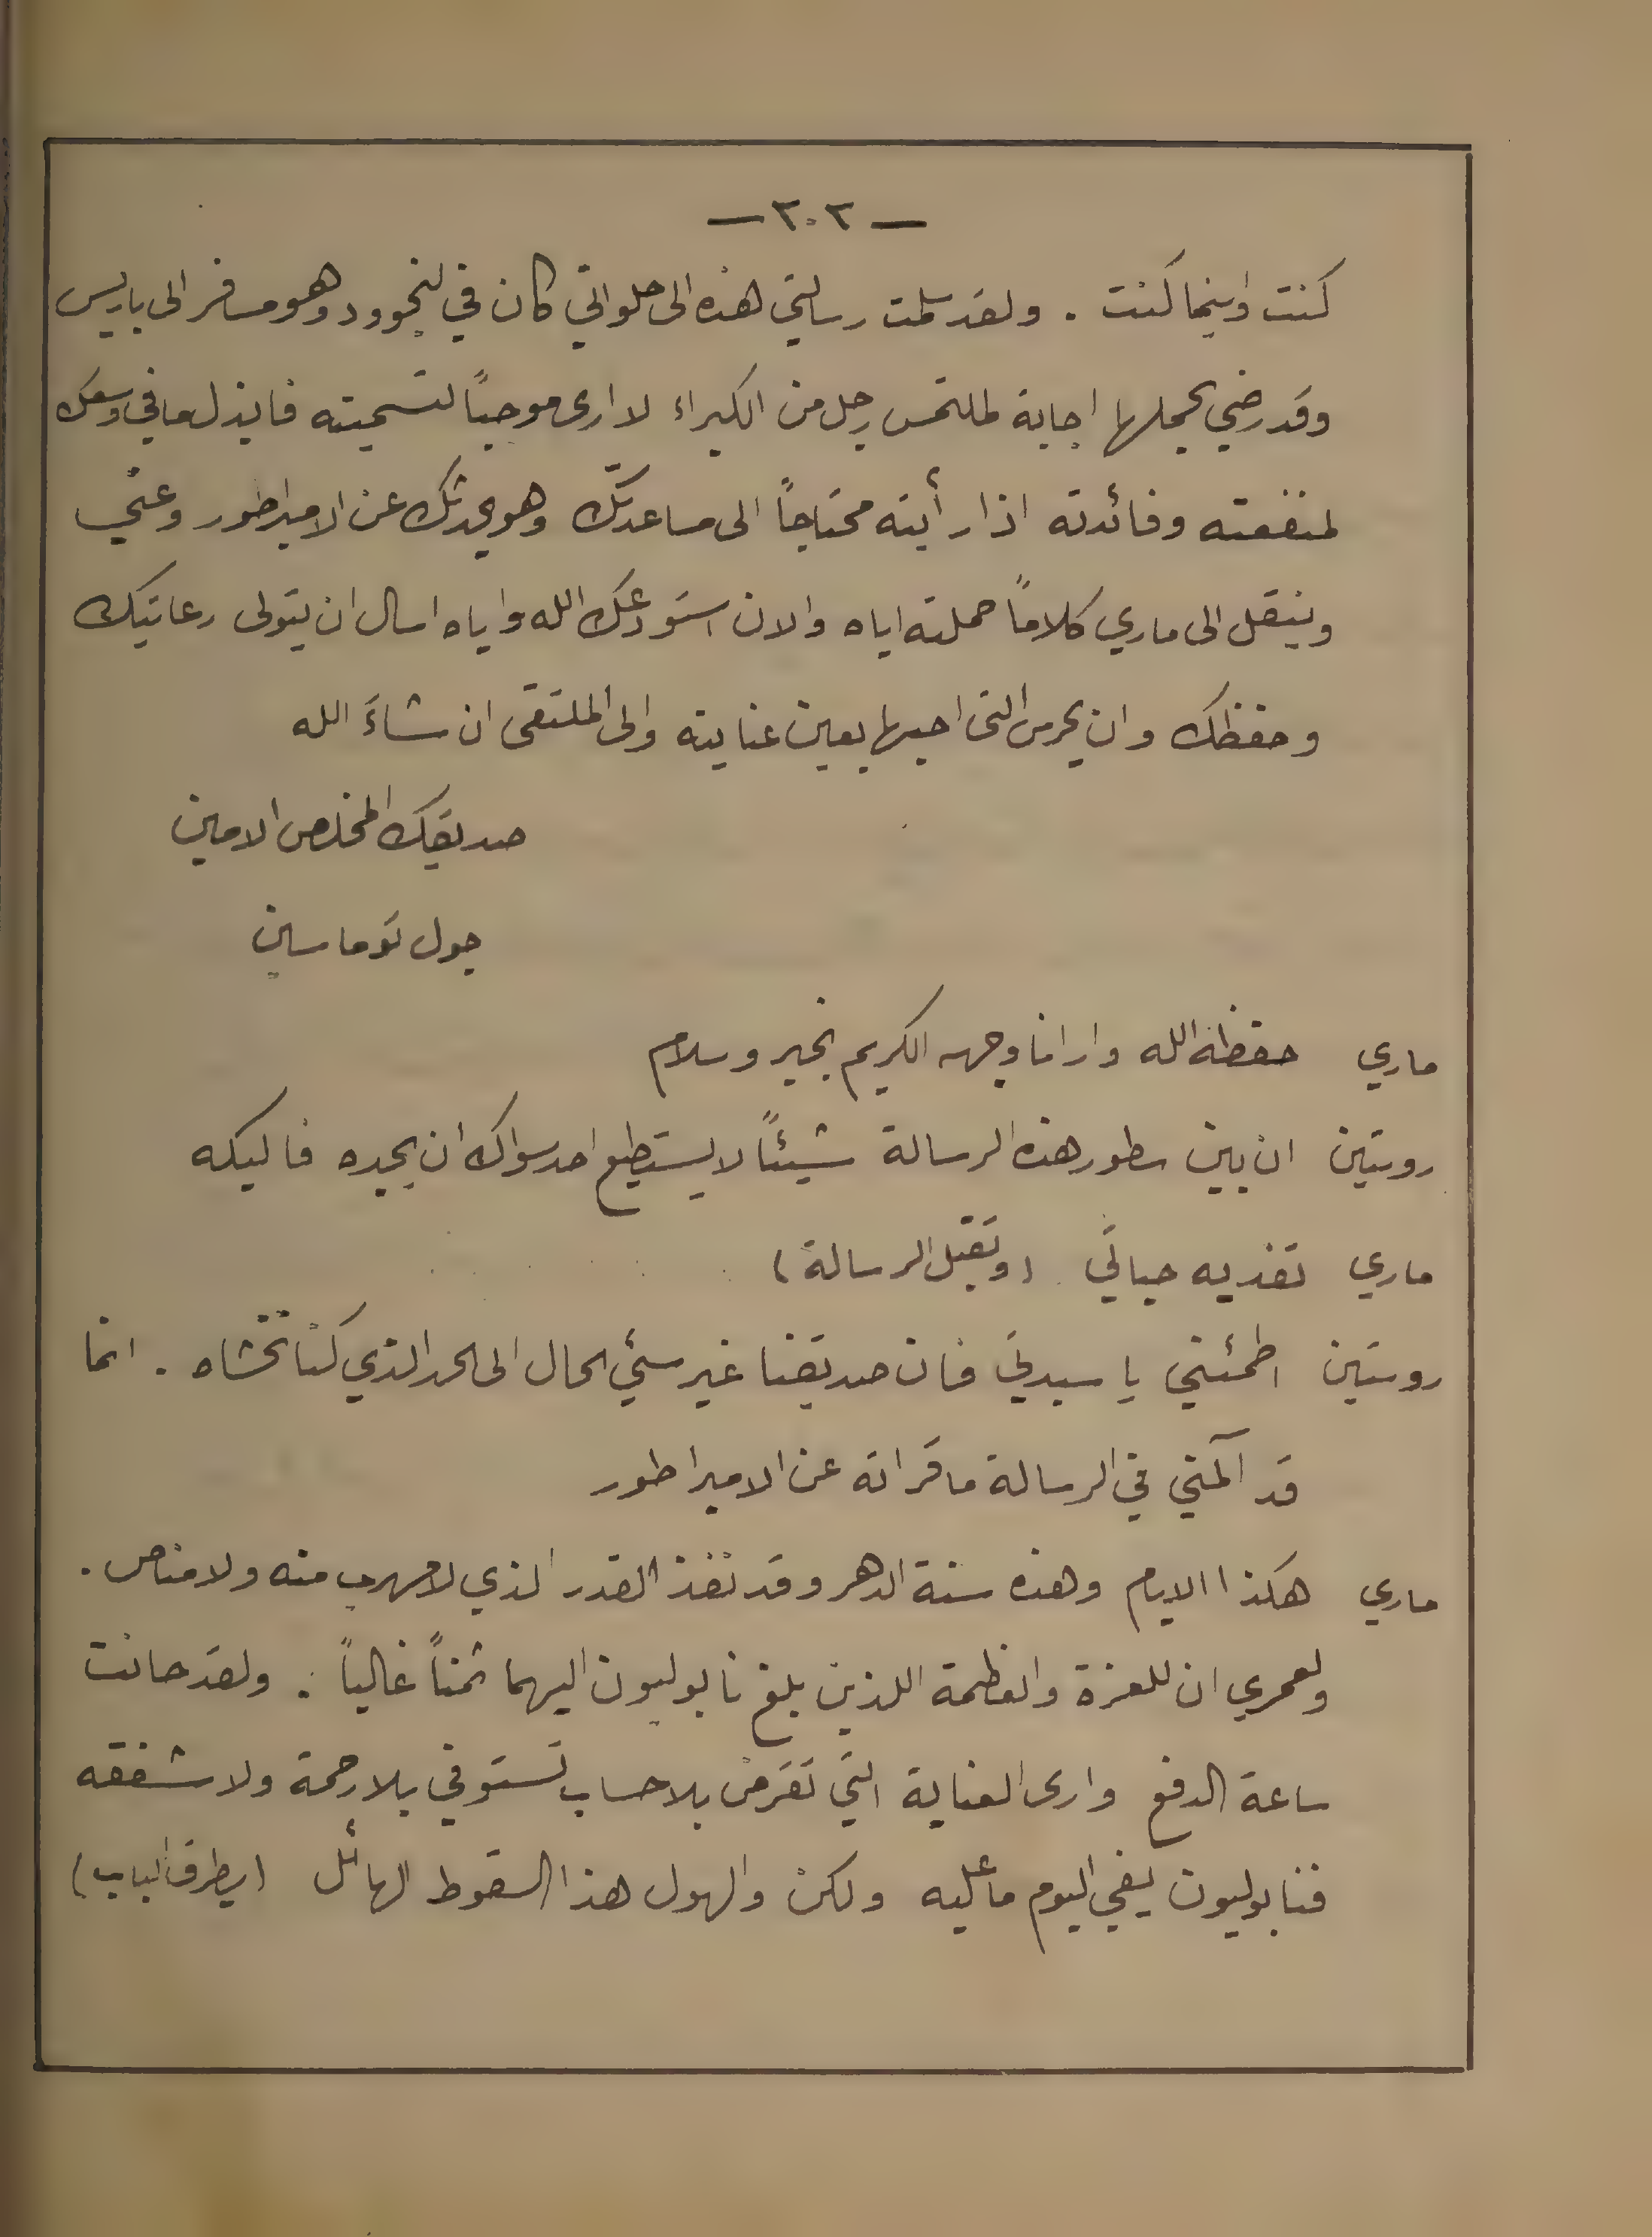 — ٢٠٢ —
كنت واينما كنت . ولقد سلمت رسالتي هذه الى حلواني كان في لنجوود وهو مسافر الى باريس
وقد رضي بحملها اجابة لملتمس رجل من الكبراء لا ارى موجباً لتسميته فابذل ما في وسعك
لمنفعته وفائدته اذا رأيته محتاجاً الى مساعدتك وهو يحدثك عن الامبراطور وعني
وينقل الى ماري كلاماً حملته اياه والان استودعك الله واياه اسال ان يتولى رعايتك
وحفظك وان يحرس التى احبها بعين عنايته والى الملتقى ان شاءَ الله
صديقك المخلص الامين
جول توماسين
ماري حفظه الله وارانا وجهه الكريم بخير وسلام
روستين ان بين سطور هذه الرسالة شيئاً لا يستطيع احد سواك ان يجده فاليكه
ماري تفديه حياتي (وتقبل الرسالة)
روستين اطمئني يا سيدتي فان صديقنا غير سيّء الحال الى الحد الذي كنا نخشاه . انما
قد آلمني في الرسالة ما قراته عن الامبراطور
ماري هكذا الايام وهذه سنة الدهر وقد نفذ القدر الذي لا مهرب منه ولا مناص .
ولعمري ان للعزة والعظمة اللذين بلغ نابوليون اليهما ثمناً غالياً . ولقد حانت
ساعة الدفع وارى العناية التي تقرض بلا حساب تستوفي بلا رحمة ولا شفقه
فنابوليون يفي اليوم ما عليه ولكن والهول هذا السقوط الهائل (يطرق الباب)